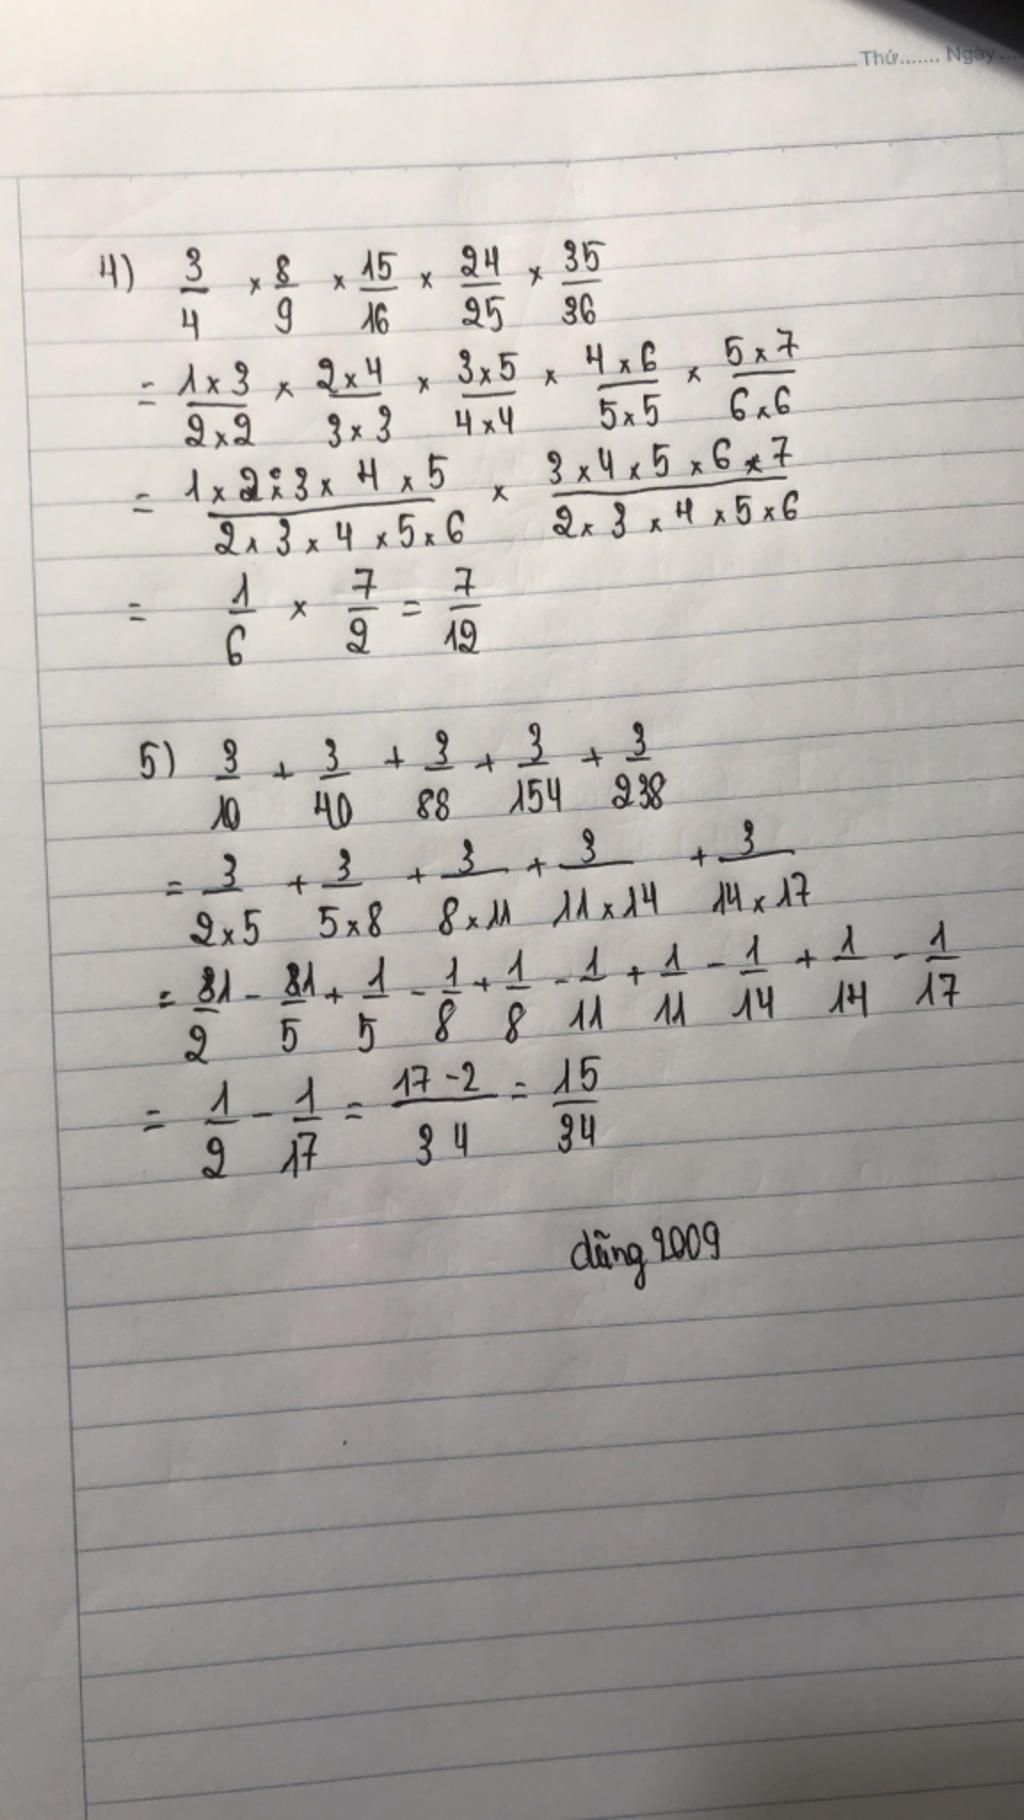 Thứ....... Ngày....
4) 3/4 × 8/9 × 15/16 × 24/25 × 35/36
= 1×3/2×2 × 2×4/3×3 × 3×5/4×4 × 4×6/5×5 × 5×7/6×6
= 1×2×3×4×5/2×3×4×5×6 × 3×4×5×6×7/2×3×4×5×6
= 1/6 × 7/2 = 7/12
5) 3/10 + 3/40 + 3/88 + 3/154 + 3/238
= 3/2×5 + 3/5×8 + 3/8×11 + 3/11×14 + 3/14×17
= 1/2 - 1/5 + 1/5 - 1/8 + 1/8 - 1/11 + 1/11 - 1/14 + 1/14 - 1/17
= 1/2 - 1/17 = 17-2/34 = 15/34
dũng2009